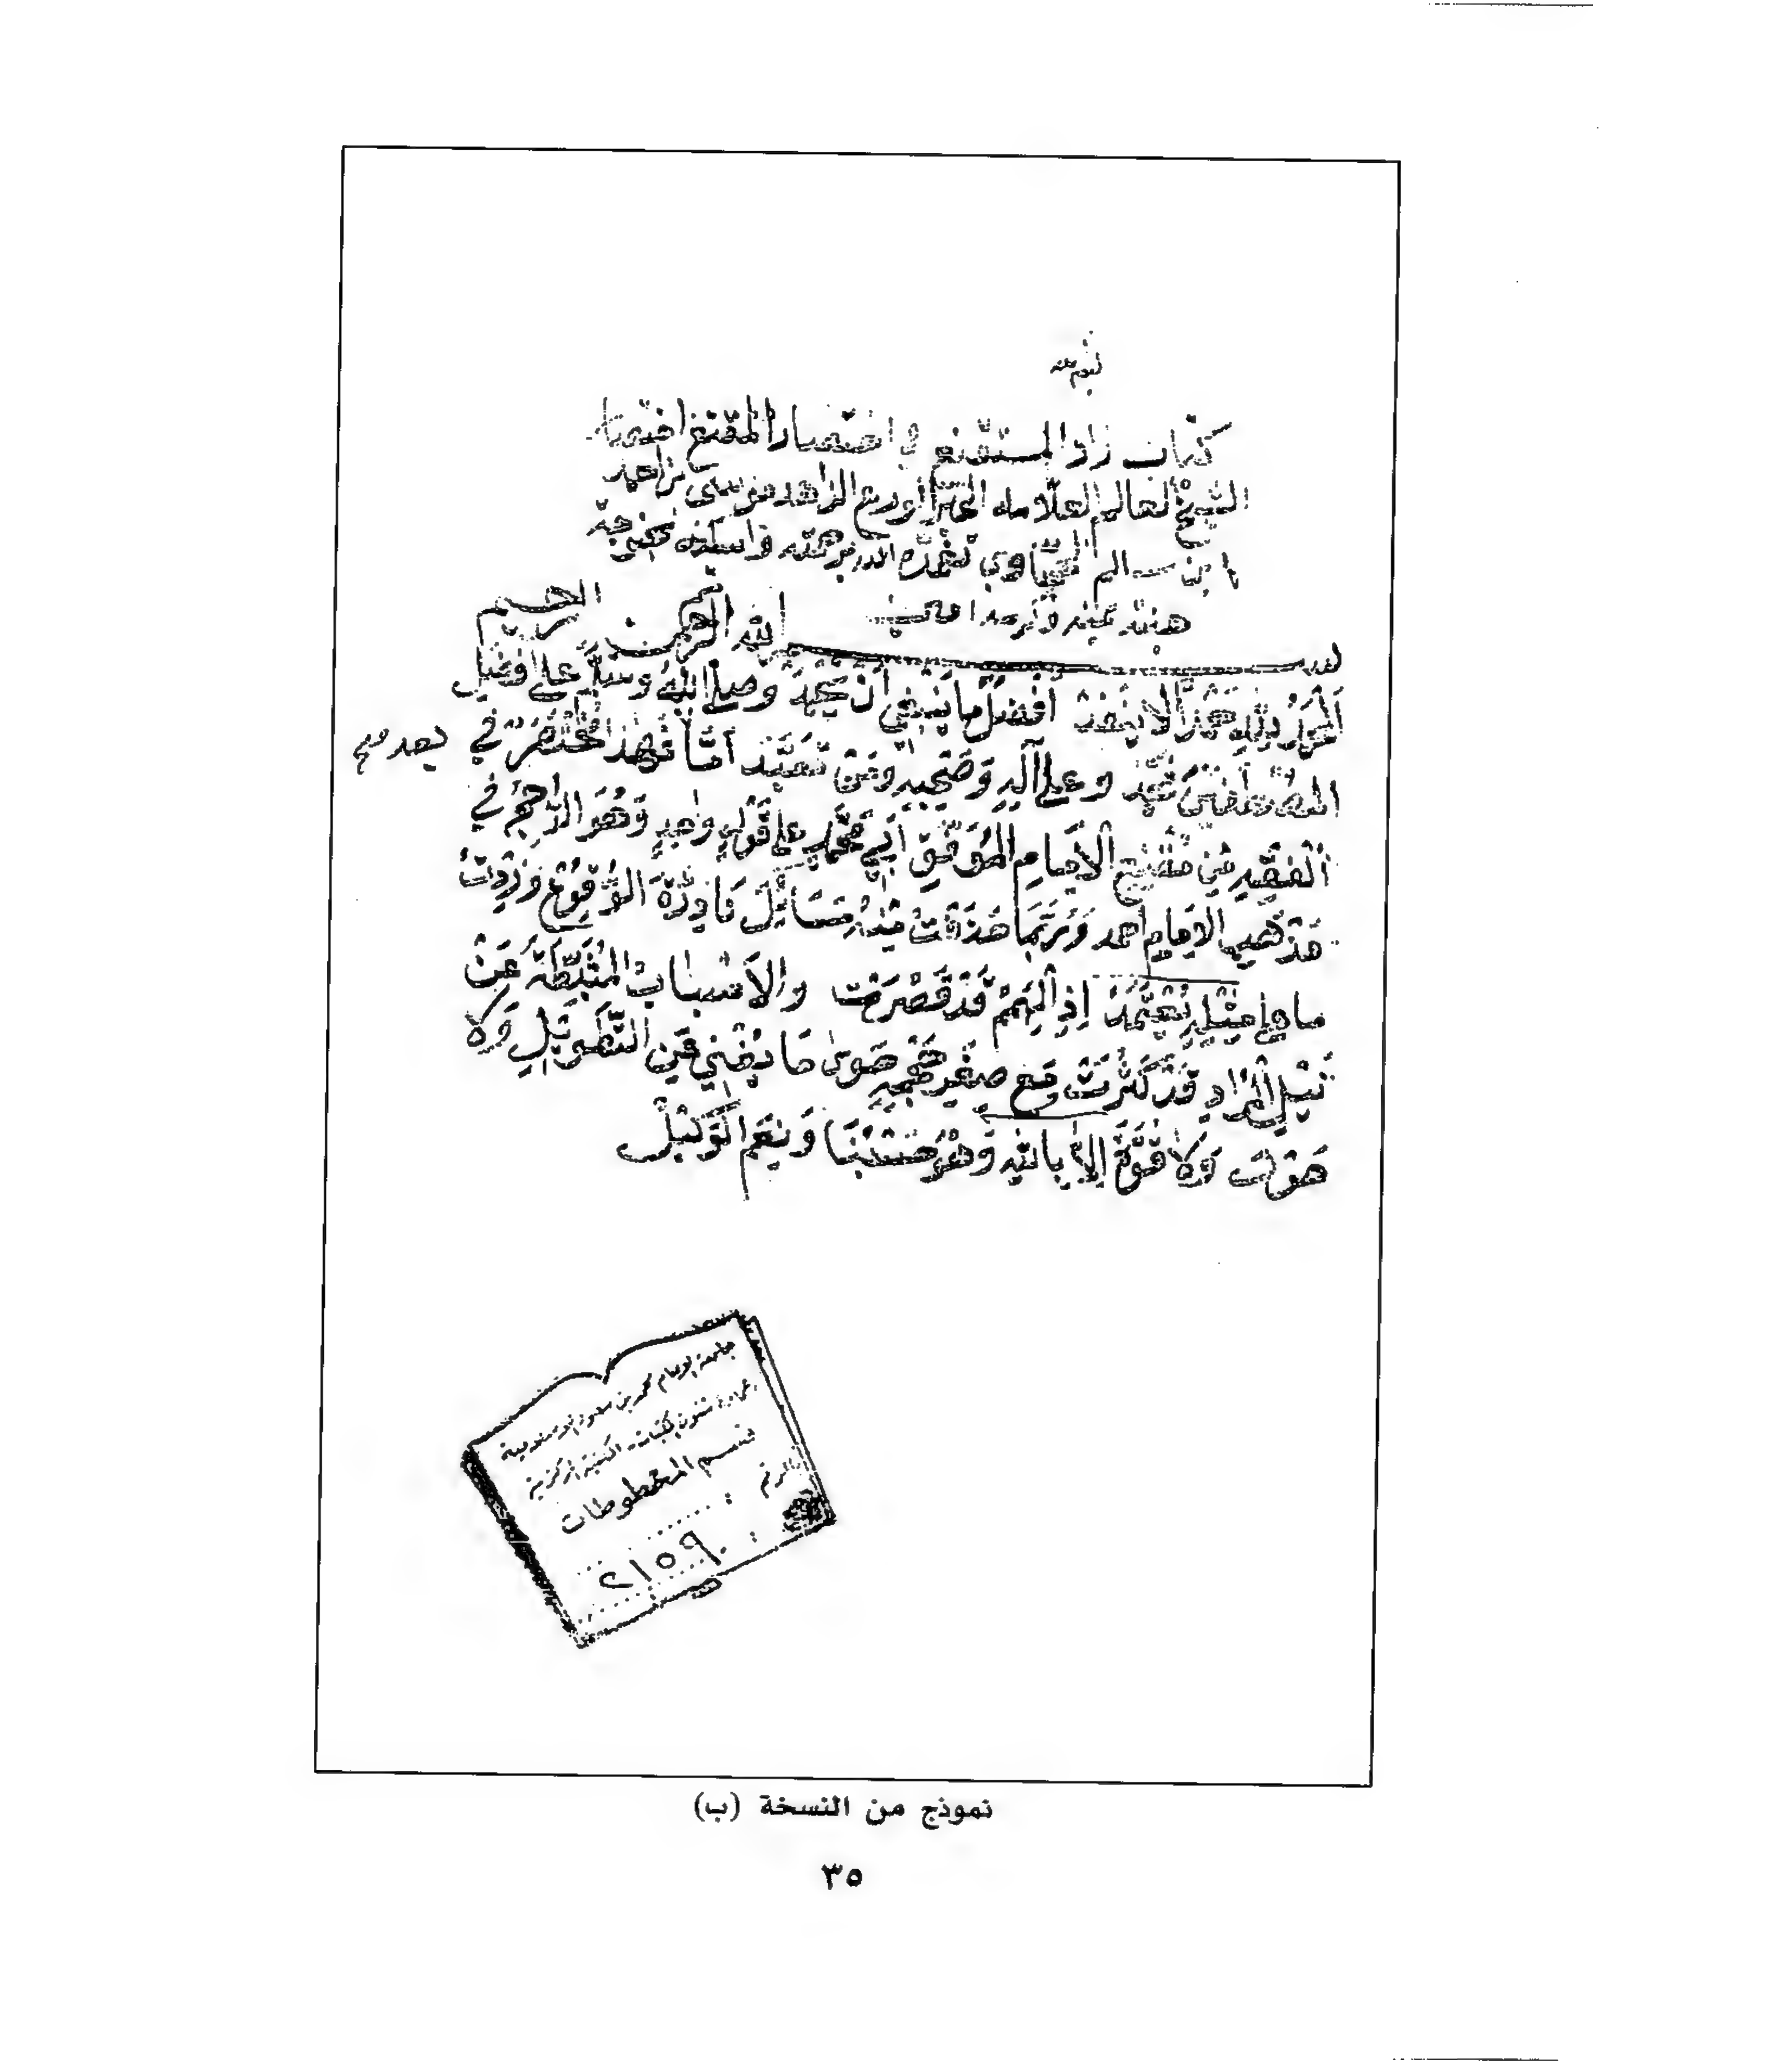 كتاب زاد المستقنع في اختصار المقنع اختصار
الشيخ العالم العلامه الحبر الورع الزاهد موسى بن احمد
ابن سالم الحجاوي تغمده الله برحمته واسكنه جنته
بمنه
بسم الله الرحمن الرحيم
الحَمْدُ لِلَّهِ حَمْدًا لا يَنْفَدُ أَفْضَلَ مَا يَنْبَغِي أَنْ يُحْمَدَ وصلى الله وسلم على أفضل
المصطفين محمد وعلى آله وصحبه ومن تعبد أمّا فهذا مختصر في
بعد صح
الفقه من مقنع الإمام الموفق أبي محمد على قول واحد وهو الراجح في
مذهب الإمام أحمد وربما حذفت منه مسائل نادرة الوقوع وزدت
ما على مثله يعتمد إذ الهمم قد قصرت والأسباب المثبطة عن
نيل المراد قد كثرت ومع صغر حجمه حوى ما يغني عن التطويل ولا
حول ولا قوة إلا بالله وهو حسبنا ونعم الوكيل
جامعة الإمام محمد بن سعود الإسلامية
عمادة شئون المكتبات - المكتبة المركزية
قسم المخطوطات
الرقم :
٢١٥٩
نموذج من النسخة (ب)
٣٥